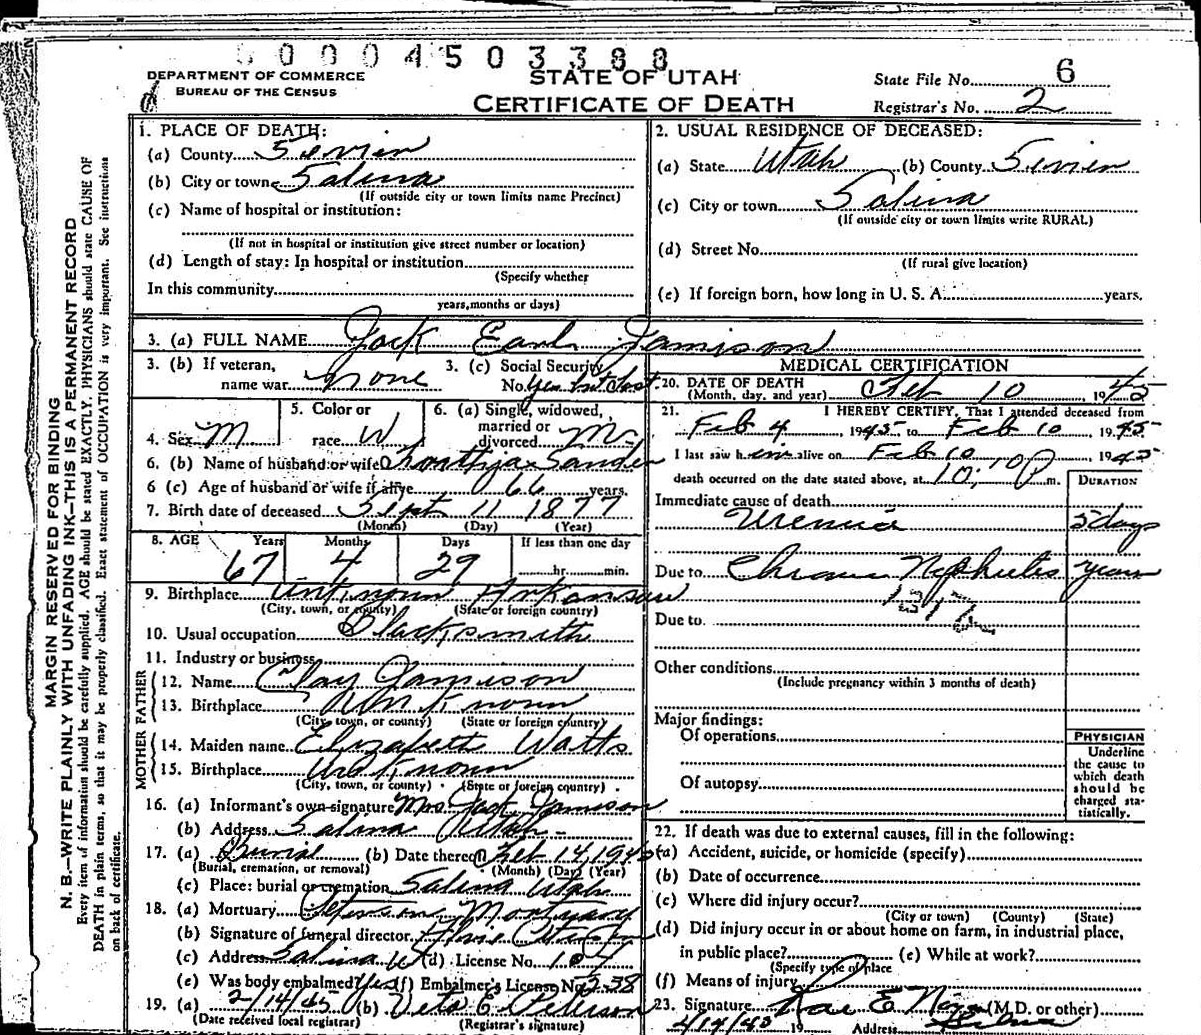 0004503388
DEPARTMENT OF COMMERCE
BUREAU OF THE CENSUS
STATE OF UTAH
CERTIFICATE OF DEATH
State File No. 6
Registrar's No. 2
MARGIN RESERVED FOR BINDING
N. B.—WRITE PLAINLY WITH UNFADING INK—THIS IS A PERMANENT RECORD
Every item of information should be carefully supplied. AGE should be stated EXACTLY. PHYSICIANS should state CAUSE OF
DEATH in plain terms, so that it may be properly classified. Exact statement of OCCUPATION is very important. See instructions
on back of certificate.
1. PLACE OF DEATH:
(a) County Sevier
(b) City or town Salina
(If outside city or town limits name Precinct)
(c) Name of hospital or institution:
(If not in hospital or institution give street number or location)
(d) Length of stay: In hospital or institution
(Specify whether
In this community
years, months or days)
2. USUAL RESIDENCE OF DECEASED:
(a) State Utah (b) County Sevier
(c) City or town Salina
(If outside city or town limits write RURAL)
(d) Street No.
(If rural give location)
(e) If foreign born, how long in U. S. A. years.
3. (a) FULL NAME Jack Earl Jamison
3. (b) If veteran, name war none
3. (c) Social Security No. Yes but lost
4. Sex M
5. Color or race W
6. (a) Single, widowed, married or divorced M
6. (b) Name of husband or wife Sanden
6 (c) Age of husband or wife if alive 66 years.
7. Birth date of deceased Sept 11 1877
(Month) (Day) (Year)
8. AGE Years Months Days If less than one day
67 4 29 hr. min.
9. Birthplace unknown Arkansas
(City, town, or county) (State or foreign country)
10. Usual occupation Blacksmith
11. Industry or business
FATHER
12. Name Clay Jamison
13. Birthplace unknown
(City, town, or county) (State or foreign country)
MOTHER
14. Maiden name Elizabeth Watts
15. Birthplace unknown
(City, town, or county) (State or foreign country)
16. (a) Informant's own signature Mrs. Jack Jamison
(b) Address Salina Utah
17. (a) Burial (b) Date thereof Feb 14, 1945
(Burial, cremation, or removal) (Month) (Day) (Year)
(c) Place: burial or cremation Salina Utah
18. (a) Mortuary Mortuary
(b) Signature of funeral director
(c) Address Salina Ut (d) License No. 104
(e) Was body embalmed? Yes (f) Embalmer's License No. 238
19. (a) 2/14/45 (b) E. Peterson
(Date received local registrar) (Registrar's signature)
MEDICAL CERTIFICATION
20. DATE OF DEATH Feb 10, 1945
(Month, day, and year)
21. I HEREBY CERTIFY, That I attended deceased from
Feb 4, 1945 to Feb 10, 1945
I last saw him alive on Feb 10 1945
death occurred on the date stated above, at 10:10 P m.
DURATION
Immediate cause of death
Uremia 5 days
Due to Chronic Nephritis years
Due to
Other conditions
(Include pregnancy within 3 months of death)
Major findings:
Of operations
Of autopsy
PHYSICIAN
Underline
the cause to
which death
should be
charged sta-
tistically.
22. If death was due to external causes, fill in the following:
(a) Accident, suicide, or homicide (specify)
(b) Date of occurrence
(c) Where did injury occur?
(City or town) (County) (State)
(d) Did injury occur in or about home on farm, in industrial place,
in public place? (e) While at work?
(Specify type of place
(f) Means of injury
23. Signature Rae E. (M.D. or other)
19 Address